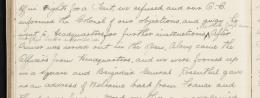 of our rights, for a Tent, we refused and our O.C.
informed the Colonel of our objections, and
sent to Headquarters for further instructions. After
Dinner was served out in the Area, along came the
Officers from Headquarters, and we were formed up
in a Square and Brigadier General Rosenthal gave
us an address of Welcome back from France and